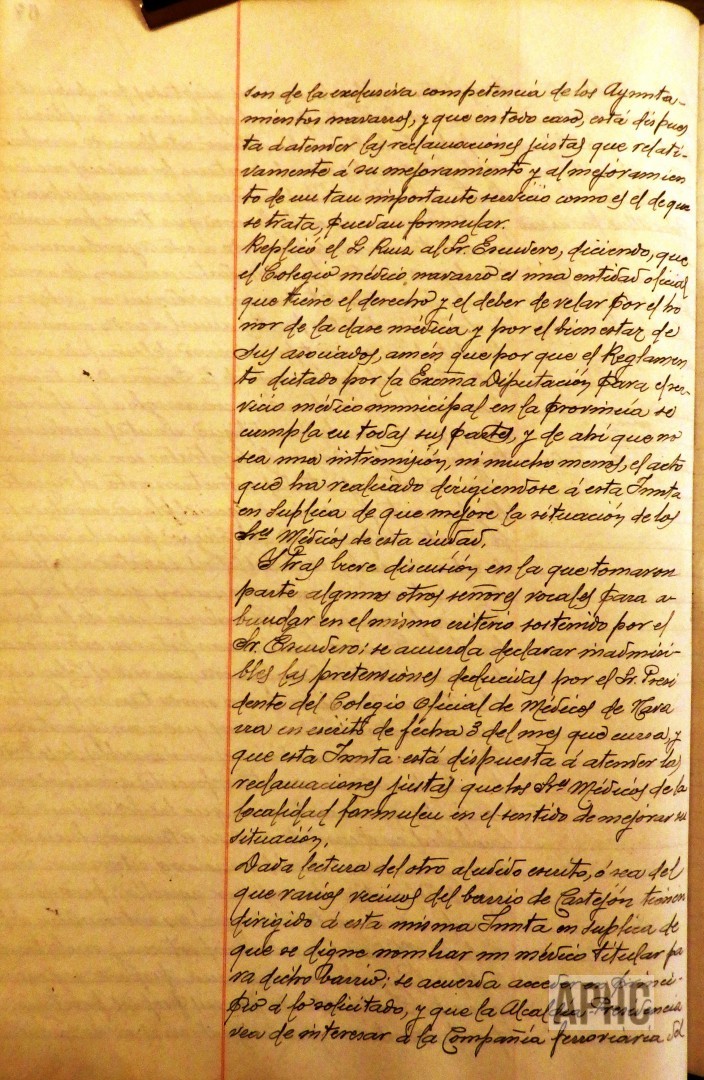 son de la exclusiva competencia de los Ayunta-
mientos navarros, y que en todo caso, está dispues
ta á atender las reclamaciones justas que relati-
vamente á su mejoramiento y al mejoramien
to de un tan importante servicio como es el de que
se trata, puedan formular.
Replicó el Sr Ruiz al Sr. Escudero, diciendo, que
el Colegio médico navarro es una entidad oficial
que tiene el derecho y el deber de velar por el ho
nor de la clase médica y por el bienestar de
sus asociados, amén que por que el Reglamen
to dictado por la Excma Diputación para el ser-
vicio médico municipal en la provincia se
cumpla en todas sus partes, y de ahí que no
sea una intromisión, ni mucho menos, el acto
que ha realizado dirigiendose á esta Junta
en suplica de que mejore la situación de los
Sres Médicos de esta ciudad.
Y tras breve discusión en la que tomaron
parte algunos otros señores vocales para a-
bundar en el mismo criterio sostenido por el
Sr. Escudero; se acuerda declarar inadmisi-
bles las pretensiones deducidas por el Sr. Presi
dente del Colegio Oficial de Médicos de Nava
rra en escrito de fecha 3 del mes que cursa, y
que esta Junta está dispuesta á atender las
reclamaciones justas que los Sres Médicos de la
localidad formulen en el sentido de mejorar su
situación.
Dada lectura del otro aludido escrito, ó sea del
que varios vecinos del barrio de Castejón tienen
dirigido á esta misma Junta en suplica de
que se digne nombrar un médico titular pa
ra dicho barrio; se acuerda acceder en princi-
pio á lo solicitado, y que la Alcaldía-Presidencia
vea de interesar á la Compañía ferroviaria del
APHC